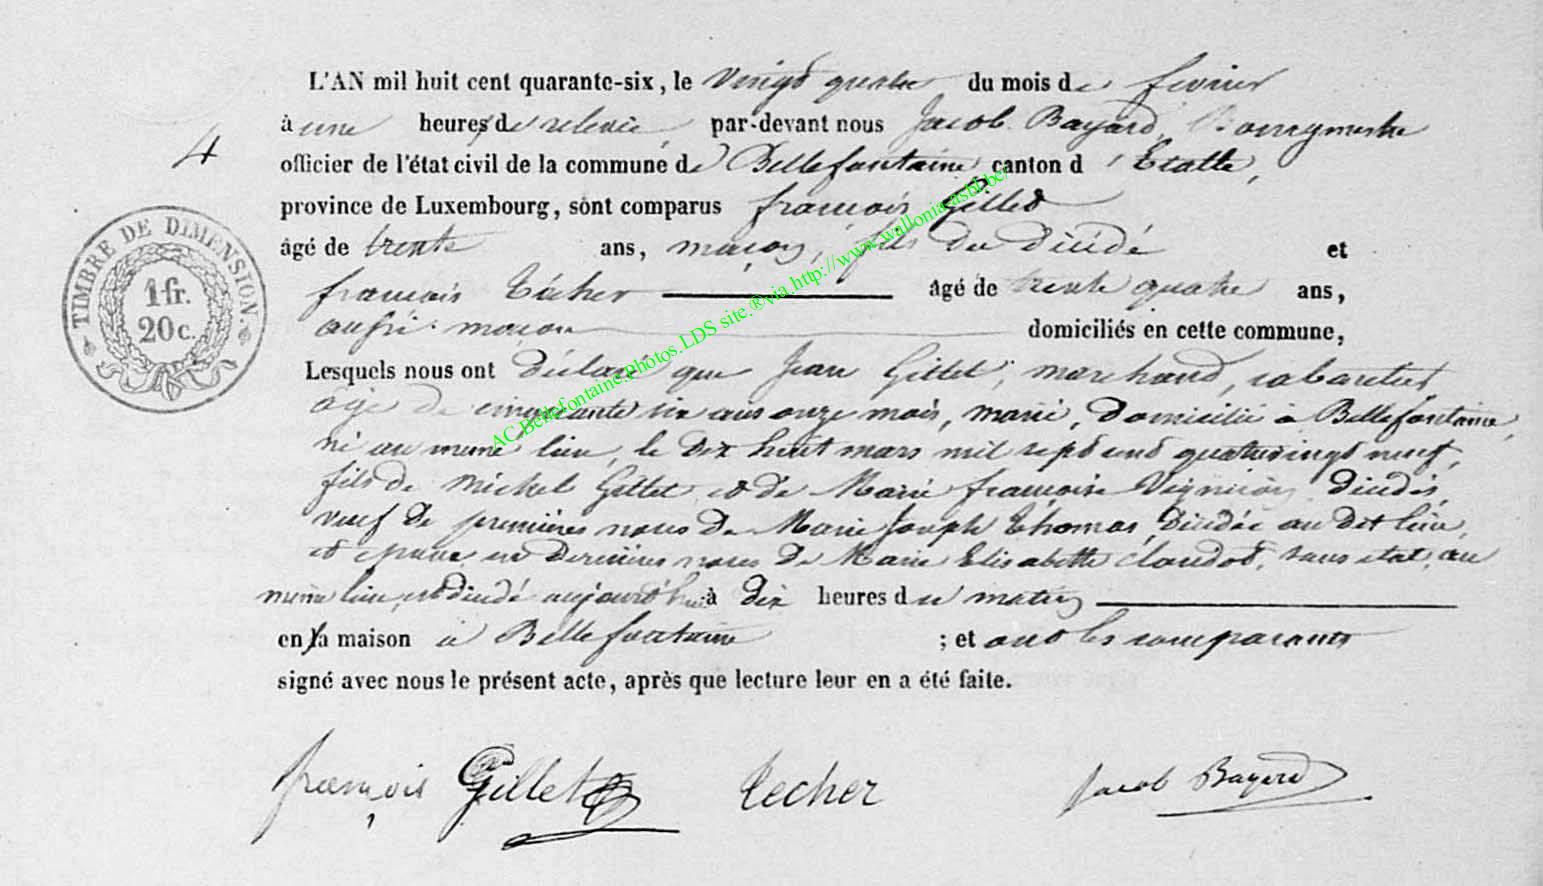 L'AN mil huit cent quarante-six, le vingt quatre du mois de fevrier
à une heures de relevée par-devant nous Jacob Bayard, Bourgmestre
4
officier de l'état civil de la commune de Bellefontaine canton d'Etalle,
province de Luxembourg, sont comparus françois Gillet
âgé de trente ans, maçon, fils du décédé et
françois Técher âgé de trente quatre ans,
aussi maçon domiciliés en cette commune,
Lesquels nous ont déclaré que Jean Gillet, marchand, cabaretier,
âgé de cinquante six ans onze mois, marié, domicilié à Bellefontaine,
né au même lieu, le dix huit mars mil sept cent quatrevingt neuf,
fils de Michel Gillet et de Marie françoise décédés,
veuf de premières noces de Marie Joseph Thomas, décédée au dit lieu,
et époux en dernières noces de Marie Elisabette Claudot, sans etat, au
même lieu, est décédé aujourd'hui à dix heures du matin
en sa maison à Bellefontaine ; et ont les comparants
signé avec nous le présent acte, après que lecture leur en a été faite.
TIMBRE DE DIMENSION.
1 fr.
20 c.
AC.Bellefontaine.Photos.LDS site.®via.http://www.wallonia-asbl.be/
françois Gillet Techer Jacob Bayard